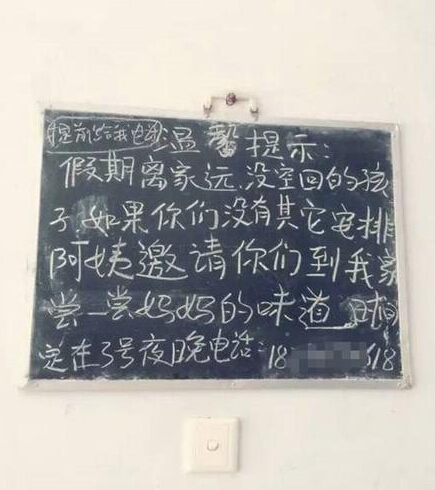 提前给我电话
温馨提示:
假期离家远,没空回的孩
子.如果你们没有其它安排
阿姨邀请你们到我家
尝一尝妈妈的味道.时间
定在3号夜晚电话:18 618